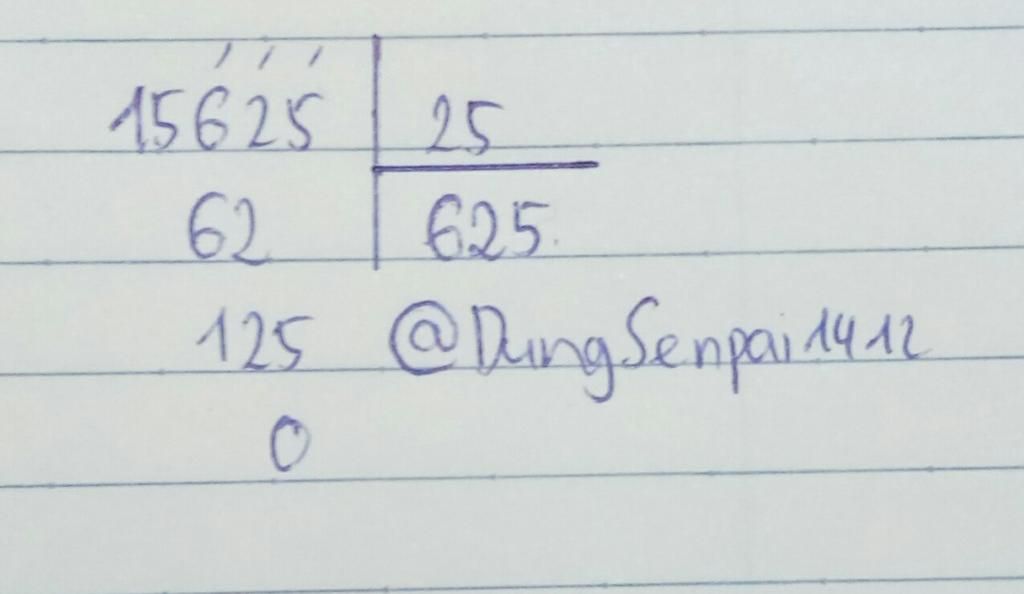 15625 25
62 625
125 @DungSenpai1412
0